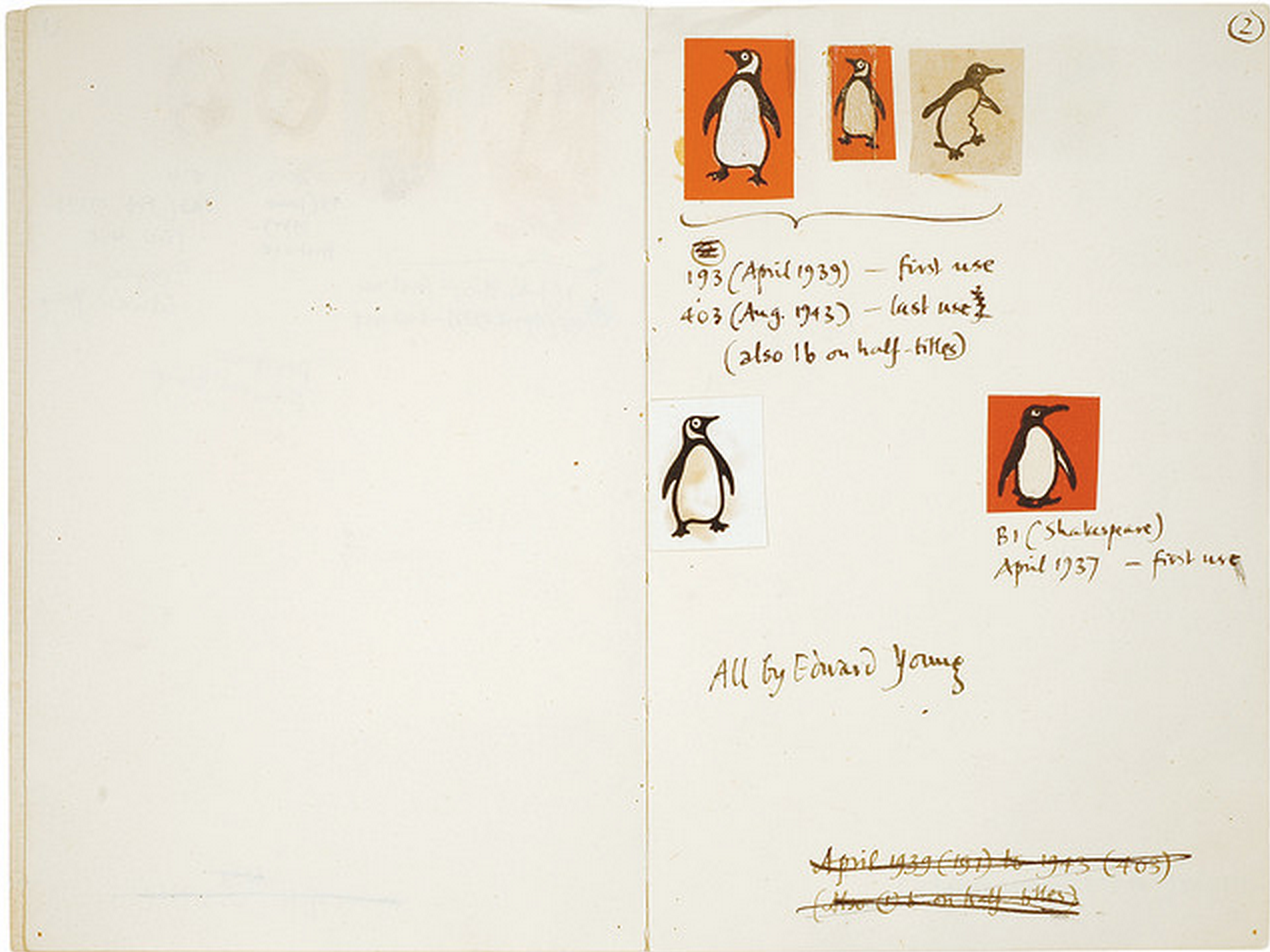 2
193 (April 1939) — first use
403 (Aug. 1943) — last use
(also 1b on half-titles)
B1 (Shakespeare)
April 1937 — first use
All by Edward Young
April 1939 (191) to 1943 (403)
(Also ① b on half-titles)